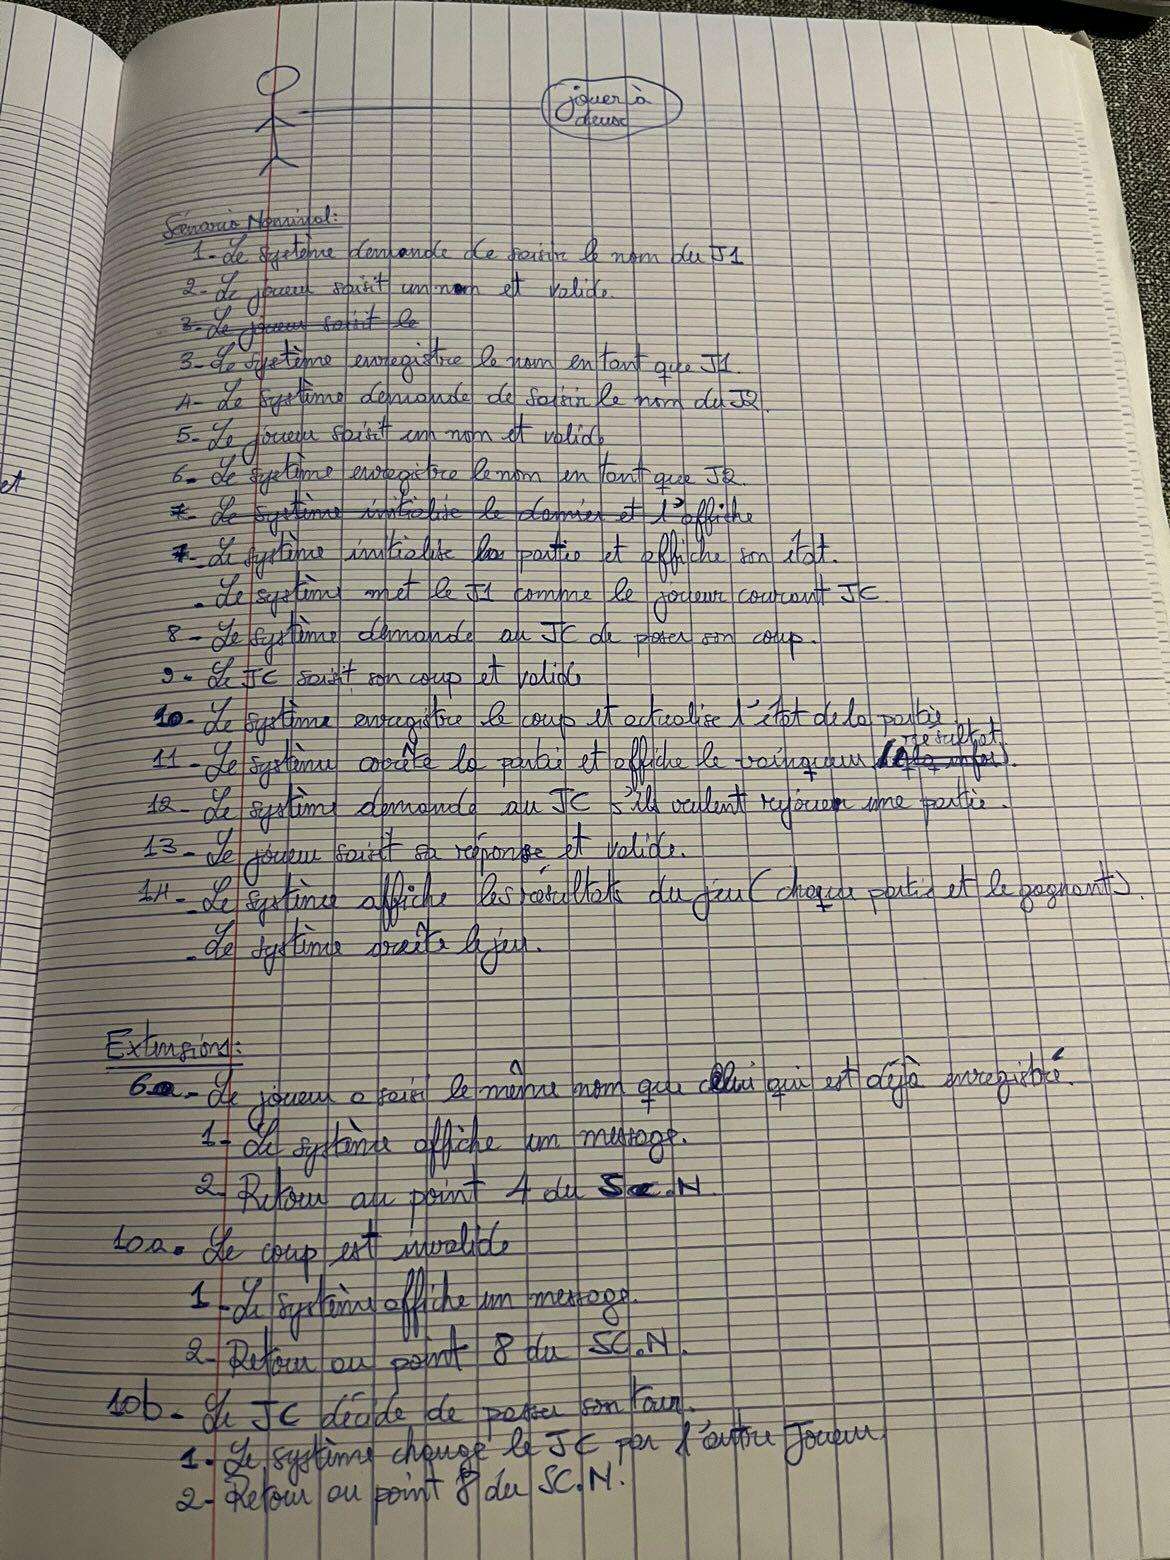 jouer à
deux
Scénario Nominal:
1- Le système demande de saisir le nom du J1
2- Le joueur saisit un nom et valide.
3- Le joueur saisit le
3- Le système enregistre le nom en tant que J1.
4- Le système demande de saisir le nom du J2.
5- Le joueur saisit un nom et valide
6- Le système enregistre le nom en tant que J2.
7- Le système initialise le damier et l'affiche
7- Le système initialise la partie et affiche son état.
- Le système met le J1 comme le joueur courant JC.
8- Le système demande au JC de poser son coup.
9- Le JC saisit son coup et valide
10- Le système enregistre le coup et actualise l'état de la partie.
résultat
11- Le système arrête la partie et affiche le vainqueur
12- Le système demande au JC s'ils veulent rejouer une partie.
13- Le joueur saisit sa réponse et valide.
14- Le système affiche les résultats du jeu (chaque partie et le gagnant)
- Le système arrête le jeu.
et
Extensions:
6a- Le joueur a saisi le même nom que celui qui est déjà enregistré.
1- Le système affiche un message.
2- Retour au point 4 du Sc.N
10a. Le coup est invalide
1- Le système affiche un message.
2- Retour au point 8 du SC.N.
10b- Le JC décide de passer son tour.
1- Le système change le JC par l'autre Joueur
2- Retour au point 8 du SC.N.